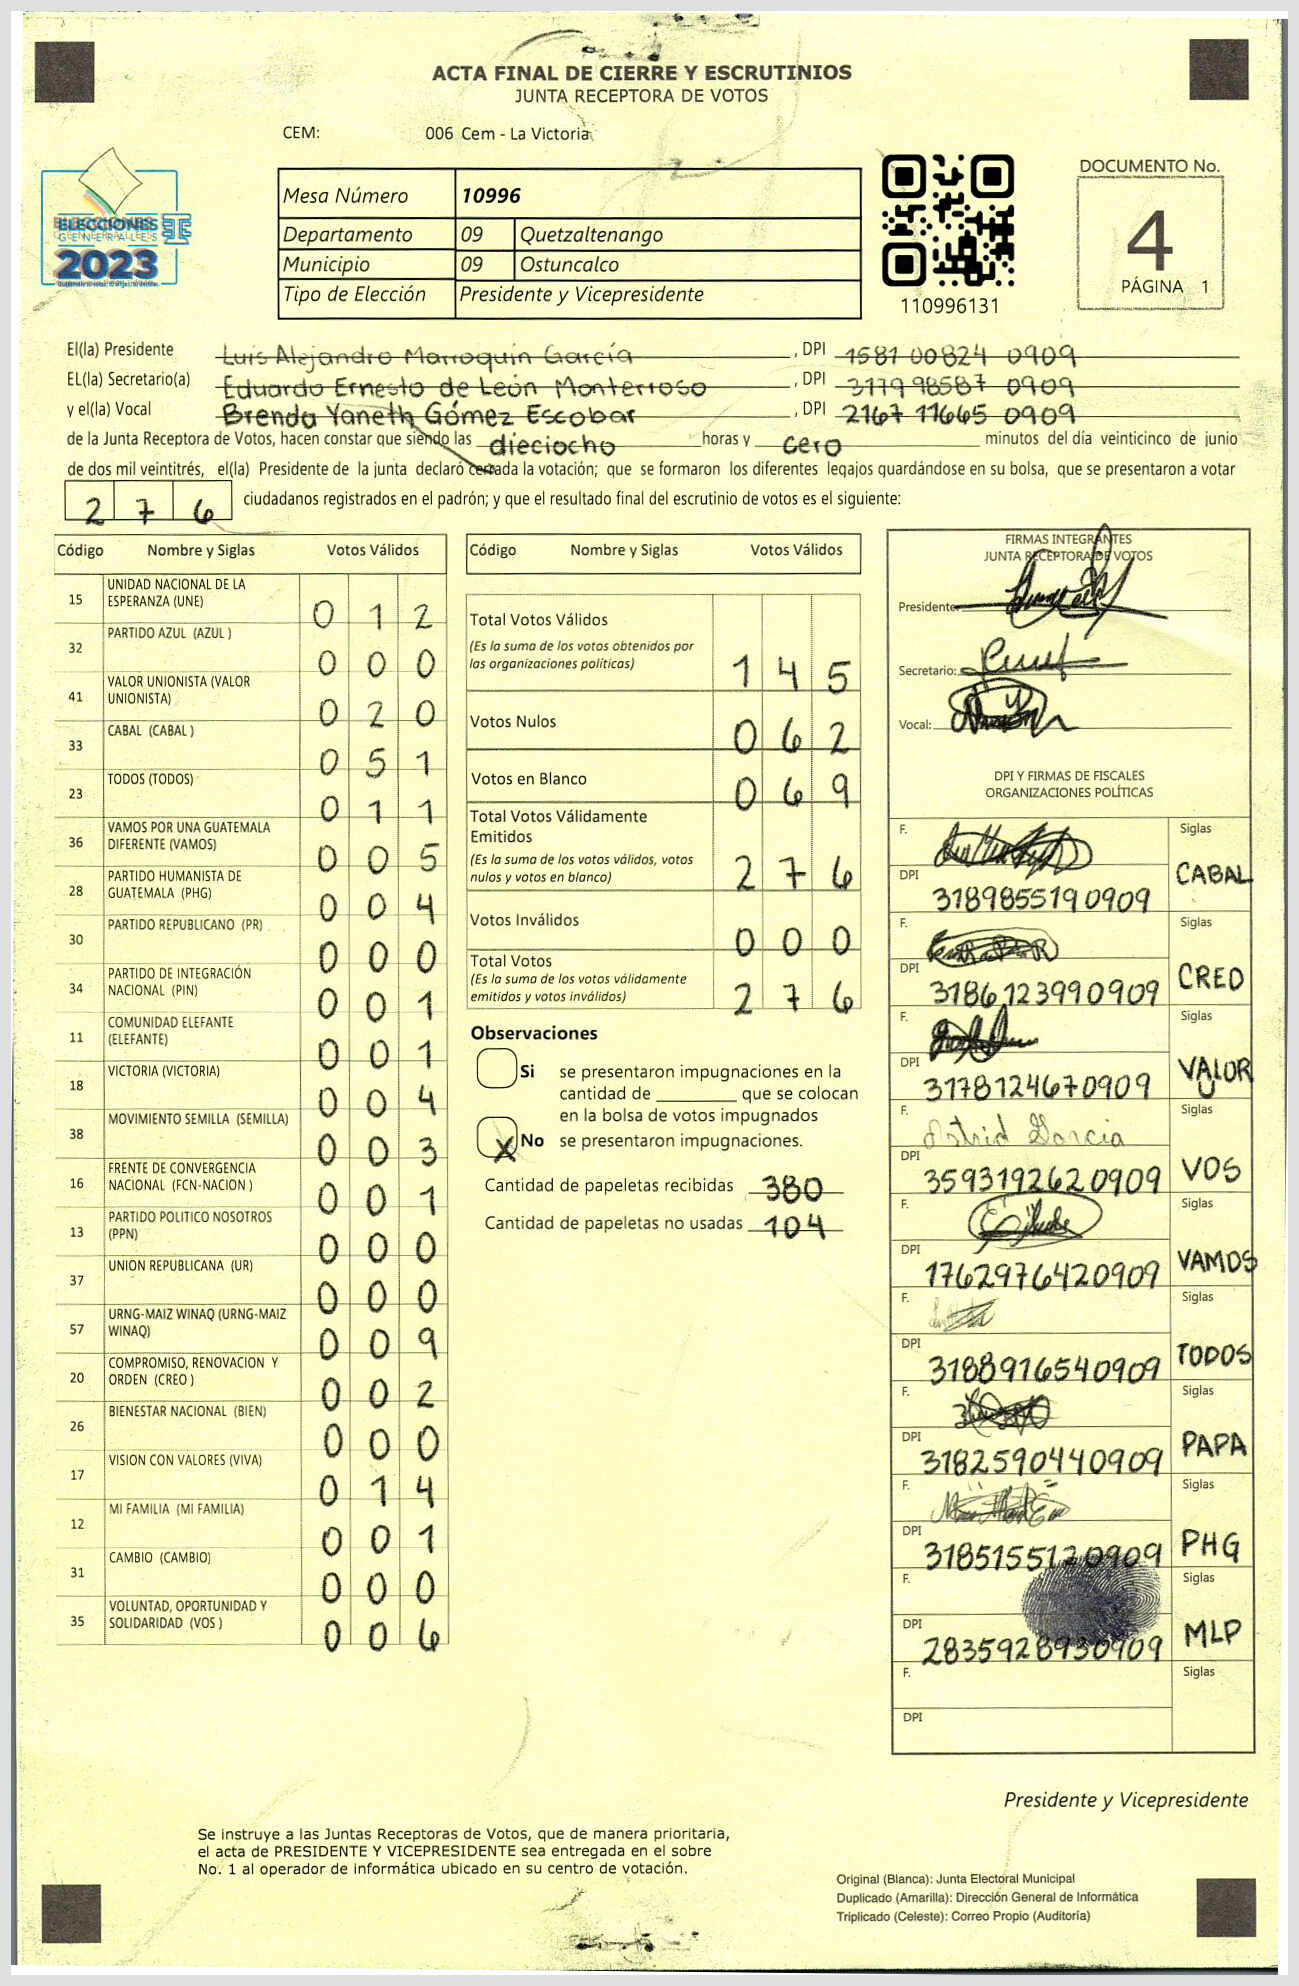 ACTA FINAL DE CIERRE Y ESCRUTINIOS
JUNTA RECEPTORA DE VOTOS
CEM: 006 Cem - La Victoria
ELECCIONES
GENERALES
2023
Mesa Número 10996
Departamento 09 Quetzaltenango
Municipio 09 Ostuncalco
Tipo de Elección Presidente y Vicepresidente
110996131
DOCUMENTO No.
4
PÁGINA 1
El(la) Presidente Luis Alejandro Marroquin García , DPI 1581 00824 0909
EL(la) Secretario(a) Eduardo Ernesto de León Monterroso , DPI 3179 98587 0909
y el(la) Vocal Brenda Yaneth Gómez Escobar , DPI 2167 11665 0909
de la Junta Receptora de Votos, hacen constar que siendo las dieciocho horas y cero minutos del día veinticinco de junio
de dos mil veintitrés, el(la) Presidente de la junta declaró cerrada la votación; que se formaron los diferentes legajos quardándose en su bolsa, que se presentaron a votar
276 ciudadanos registrados en el padrón; y que el resultado final del escrutinio de votos es el siguiente:
Código Nombre y Siglas Votos Válidos
15 UNIDAD NACIONAL DE LA
ESPERANZA (UNE) 0 1 2
32 PARTIDO AZUL (AZUL ) 0 0 0
41 VALOR UNIONISTA (VALOR
UNIONISTA) 0 2 0
33 CABAL (CABAL ) 0 5 1
23 TODOS (TODOS) 0 1 1
36 VAMOS POR UNA GUATEMALA
DIFERENTE (VAMOS) 0 0 5
28 PARTIDO HUMANISTA DE
GUATEMALA (PHG) 0 0 4
30 PARTIDO REPUBLICANO (PR) 0 0 0
34 PARTIDO DE INTEGRACIÓN
NACIONAL (PIN) 0 0 1
11 COMUNIDAD ELEFANTE
(ELEFANTE) 0 0 1
18 VICTORIA (VICTORIA) 0 0 4
38 MOVIMIENTO SEMILLA (SEMILLA) 0 0 3
16 FRENTE DE CONVERGENCIA
NACIONAL (FCN-NACION ) 0 0 1
13 PARTIDO POLITICO NOSOTROS
(PPN) 0 0 0
37 UNION REPUBLICANA (UR) 0 0 0
57 URNG-MAIZ WINAQ (URNG-MAIZ
WINAQ) 0 0 9
20 COMPROMISO, RENOVACION Y
ORDEN (CREO ) 0 0 2
26 BIENESTAR NACIONAL (BIEN) 0 0 0
17 VISION CON VALORES (VIVA) 0 1 4
12 MI FAMILIA (MI FAMILIA) 0 0 1
31 CAMBIO (CAMBIO) 0 0 0
35 VOLUNTAD, OPORTUNIDAD Y
SOLIDARIDAD (VOS ) 0 0 6
Código Nombre y Siglas Votos Válidos
Total Votos Válidos
(Es la suma de los votos obtenidos por
las organizaciones políticas) 1 4 5
Votos Nulos 0 6 2
Votos en Blanco 0 6 9
Total Votos Válidamente
Emitidos
(Es la suma de los votos válidos, votos
nulos y votos en blanco) 2 7 6
Votos Inválidos 0 0 0
Total Votos
(Es la suma de los votos válidamente
emitidos y votos inválidos) 2 7 6
Observaciones
Si se presentaron impugnaciones en la
cantidad de ________ que se colocan
en la bolsa de votos impugnados
X No se presentaron impugnaciones.
Cantidad de papeletas recibidas 380
Cantidad de papeletas no usadas 104
FIRMAS INTEGRANTES
JUNTA RECEPTORA DE VOTOS
Presidente:
Secretario:
Vocal:
DPI Y FIRMAS DE FISCALES
ORGANIZACIONES POLÍTICAS
F. Siglas
DPI 3189855190909 CABAL
F. Siglas
DPI 3186123990909 CREO
F. Siglas
DPI 3178124670909 VALOR
U
F. Astrid García Siglas
DPI 3593192620909 VOS
F. Siglas
DPI 1762976420909 VAMOS
F. Siglas
DPI 3188916540909 TODOS
F. Siglas
DPI 3182590440909 PAPA
F. Siglas
DPI 3185155120909 PHG
F. Siglas
DPI 2835928930909 MLP
F. Siglas
DPI
Presidente y Vicepresidente
Se instruye a las Juntas Receptoras de Votos, que de manera prioritaria,
el acta de PRESIDENTE Y VICEPRESIDENTE sea entregada en el sobre
No. 1 al operador de informática ubicado en su centro de votación.
Original (Blanca): Junta Electoral Municipal
Duplicado (Amarilla): Dirección General de Informática
Triplicado (Celeste): Correo Propio (Auditoría)